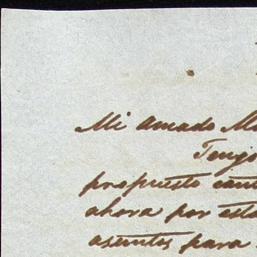 Mi amado
Tengo
propuesto
ahora por esta
asuntos para